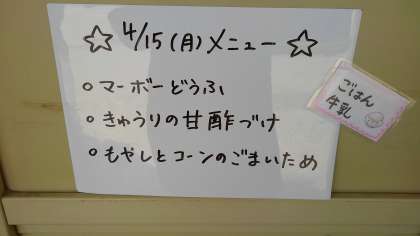 ☆4/15(月)メニュー☆
○マーボーどうふ
○きゅうりの甘酢づけ
○もやしとコーンのごまいため
ごはん
牛乳